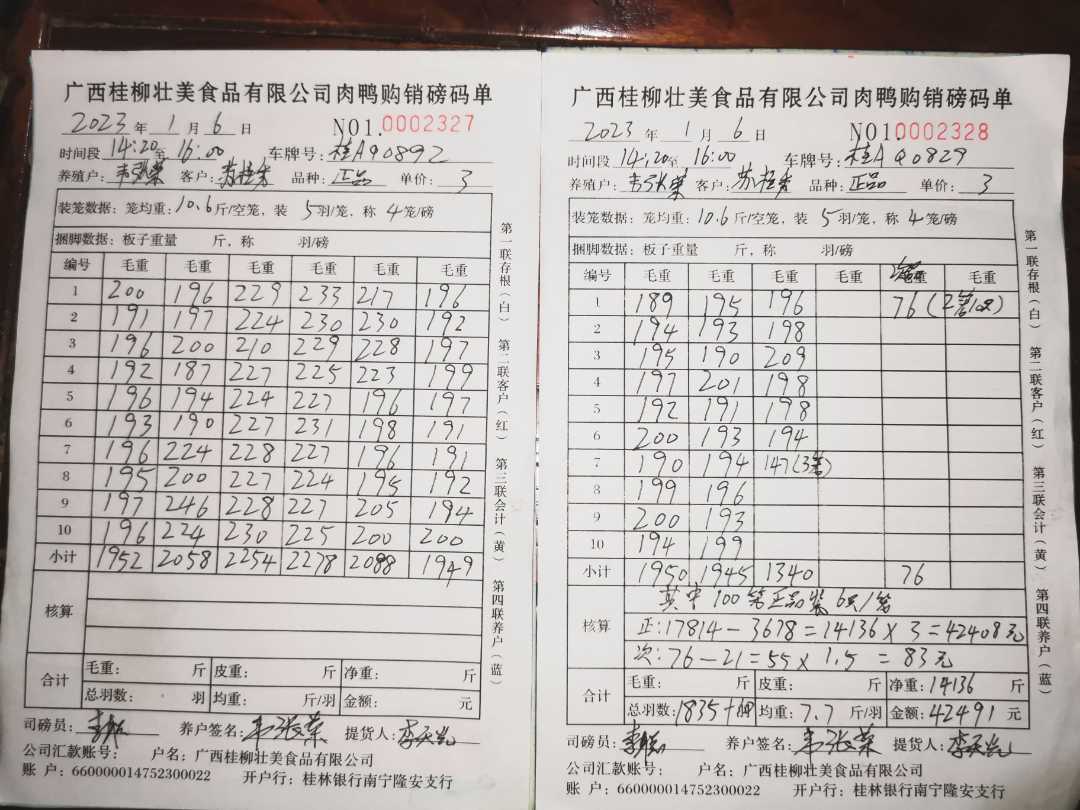 广西桂柳壮美食品有限公司肉鸭购销磅码单
2023 年 1 月 6 日 NO1.0002327
时间段 14:20 至 16:00 车牌号: 桂A90892
养殖户: 韦张荣 客户: 苏桂 品种: 正品 单价: 3
装笼数据: 笼均重: 10.6 斤/空笼, 装 5 羽/笼, 称 4 笼/磅
捆脚数据: 板子重量 斤, 称 羽/磅
编号 毛重 毛重 毛重 毛重 毛重 毛重
1 200 196 229 233 217 196
2 191 197 224 230 230 192
3 196 200 210 229 228 197
4 192 187 227 225 223 199
5 196 194 224 227 196 197
6 193 190 227 231 198 191
7 196 224 228 227 196 191
8 195 200 227 224 195 192
9 197 246 228 227 205 194
10 196 224 230 225 200 200
小计 1952 2058 2254 2278 2088 1949
核算
合计 毛重: 斤 皮重: 斤 净重: 斤
总羽数: 羽 均重: 斤/羽 金额: 元
司磅员: 李 养户签名: 韦张荣 提货人: 李
公司汇款账号: 户名: 广西桂柳壮美食品有限公司
账 户: 660000014752300022 开户行: 桂林银行南宁隆安支行
第一联存根(白) 第二联客户(红) 第三联会计(黄) 第四联养户(蓝)
广西桂柳壮美食品有限公司肉鸭购销磅码单
2023 年 1 月 6 日 NO1.0002328
时间段 14:20 至 16:00 车牌号: 桂A Q0829
养殖户: 韦张荣 客户: 苏桂 品种: 正品 单价: 3
装笼数据: 笼均重: 10.6 斤/空笼, 装 5 羽/笼, 称 4 笼/磅
捆脚数据: 板子重量 斤, 称 羽/磅
编号 毛重 毛重 毛重 毛重 毛重 毛重
1 189 195 196 76(2笼10只)
2 194 193 198
3 195 190 209
4 197 201 198
5 192 191 198
6 200 193 194
7 190 194 147(3笼)
8 199 196
9 200 193
10 194 199
小计 1950 1945 1340 76
其中100笼正品装6只/笼
核算 正:17814-3678=14136×3=42408元
次:76-21=55×1.5=83元
合计 毛重: 斤 皮重: 斤 净重: 14136 斤
总羽数: 1835 均重: 7.7 斤/羽 金额: 42491 元
司磅员: 李 养户签名: 韦张荣 提货人: 李
公司汇款账号: 户名: 广西桂柳壮美食品有限公司
账 户: 660000014752300022 开户行: 桂林银行南宁隆安支行
第一联存根(白) 第二联客户(红) 第三联会计(黄) 第四联养户(蓝)